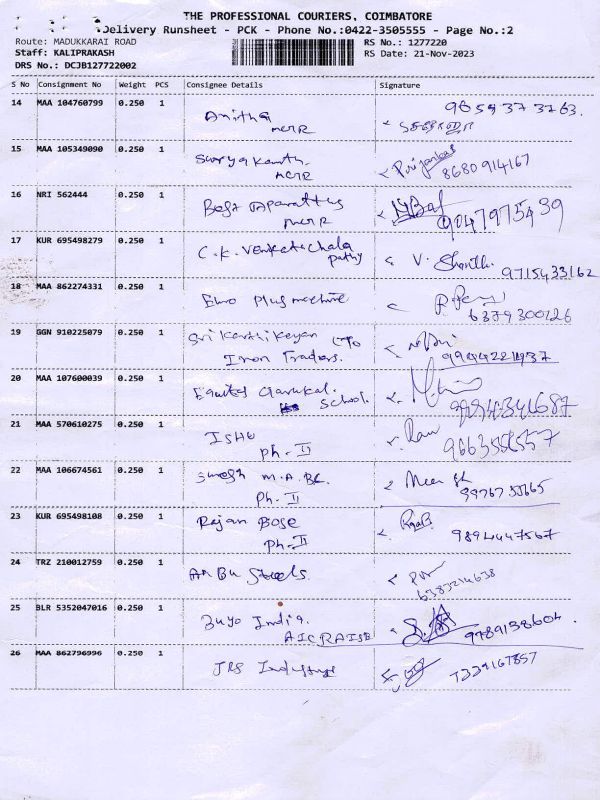 THE PROFESSIONAL COURIERS, COIMBATORE
Delivery Runsheet - PCK - Phone No.:0422-3505555 - Page No.:2
Route: MADUKKARAI ROAD
RS No.: 1277220
Staff: KALIPRAKASH
RS Date: 21-Nov-2023
DRS No.: DCJB127722002
S No Consignment No Weight PCS Consignee Details Signature
14 MAA 104760799 0.250 1 Anitha
15 MAA 105349090 0.250 1 Suryakanth.
8680914167
16 NRI 562444 0.250 1 Best Aparattus
9047975439
17 KUR 695498279 0.250 1 C.K. Venkatachala
pathy
V. Shanthi.
9715433162
18 MAA 862274331 0.250 1 Euro Plus machine
6379300126
19 GGN 910225079 0.250 1 Sri Karthikeyan
Iron Traders.
9944221437
20 MAA 107600039 0.250 1 Equitas Gurukul.
School.
21 MAA 570610275 0.250 1 ISHU
Ph-II
Ravi
22 MAA 106674561 0.250 1 Suresh M.A.BL.
Ph-II
23 KUR 695498108 0.250 1 Rajan Bose
Ph-II
9894447567
24 TRZ 210012759 0.250 1 Anbu Steels.
6383214638
25 BLR 5352047016 0.250 1 Zuyo India.
9789138604.
26 MAA 862796996 0.250 1
7339167857